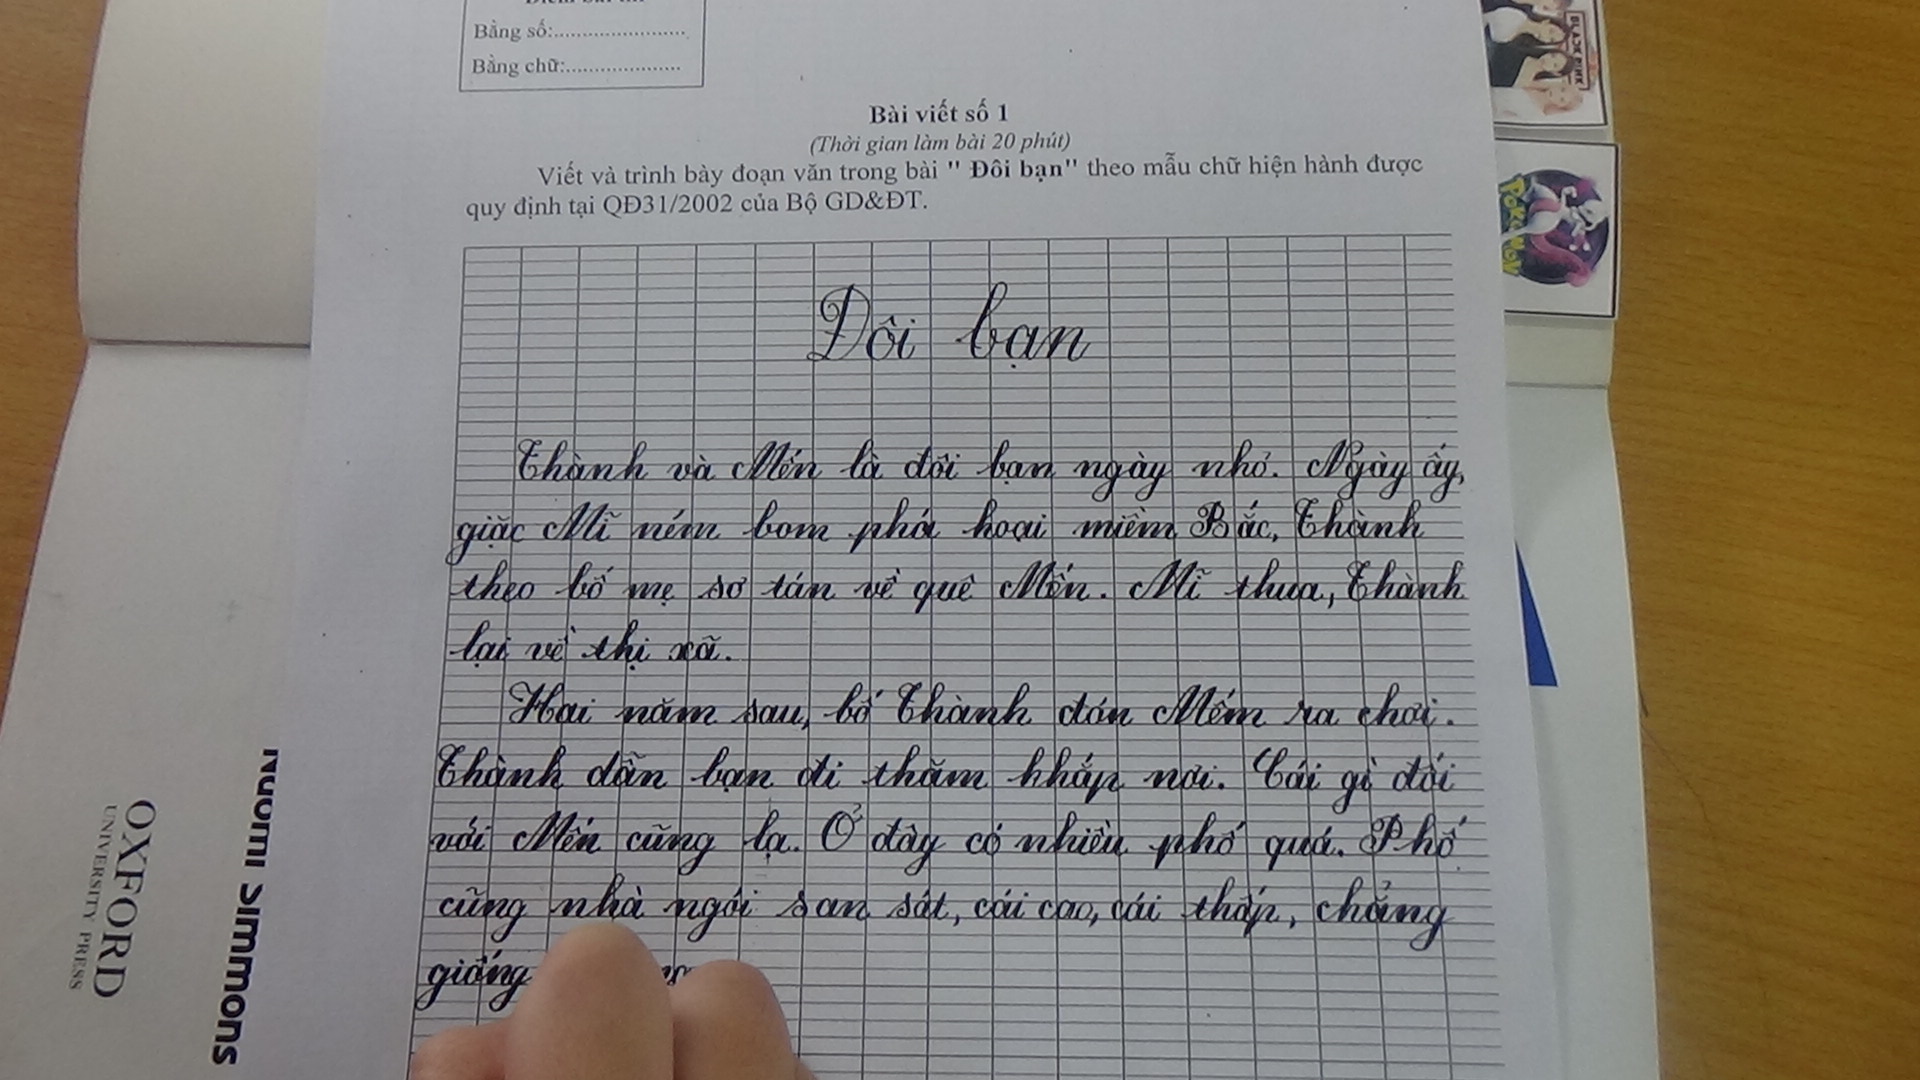 Bằng số:......................
Bằng chữ:...................
Bài viết số 1
(Thời gian làm bài 20 phút)
Viết và trình bày đoạn văn trong bài " Đôi bạn" theo mẫu chữ hiện hành được
quy định tại QĐ31/2002 của Bộ GD&ĐT.
Đôi bạn
Thành và Mến là đôi bạn ngày nhỏ. Ngày ấy,
giặc Mĩ ném bom phá hoại miền Bắc, Thành
theo bố mẹ sơ tán về quê Mến. Mĩ thua, Thành
lại về thị xã.
Hai năm sau, bố Thành đón Mến ra chơi.
Thành dẫn bạn đi thăm khắp nơi. Cái gì đối
với Mến cũng lạ. Ở đây có nhiều phố quá. Phố
cũng nhà ngói san sát, cái cao, cái thấp, chẳng
giống
OXFORD
UNIVERSITY PRESS
Naomi Simmons
BLACKPINK
POKEMON